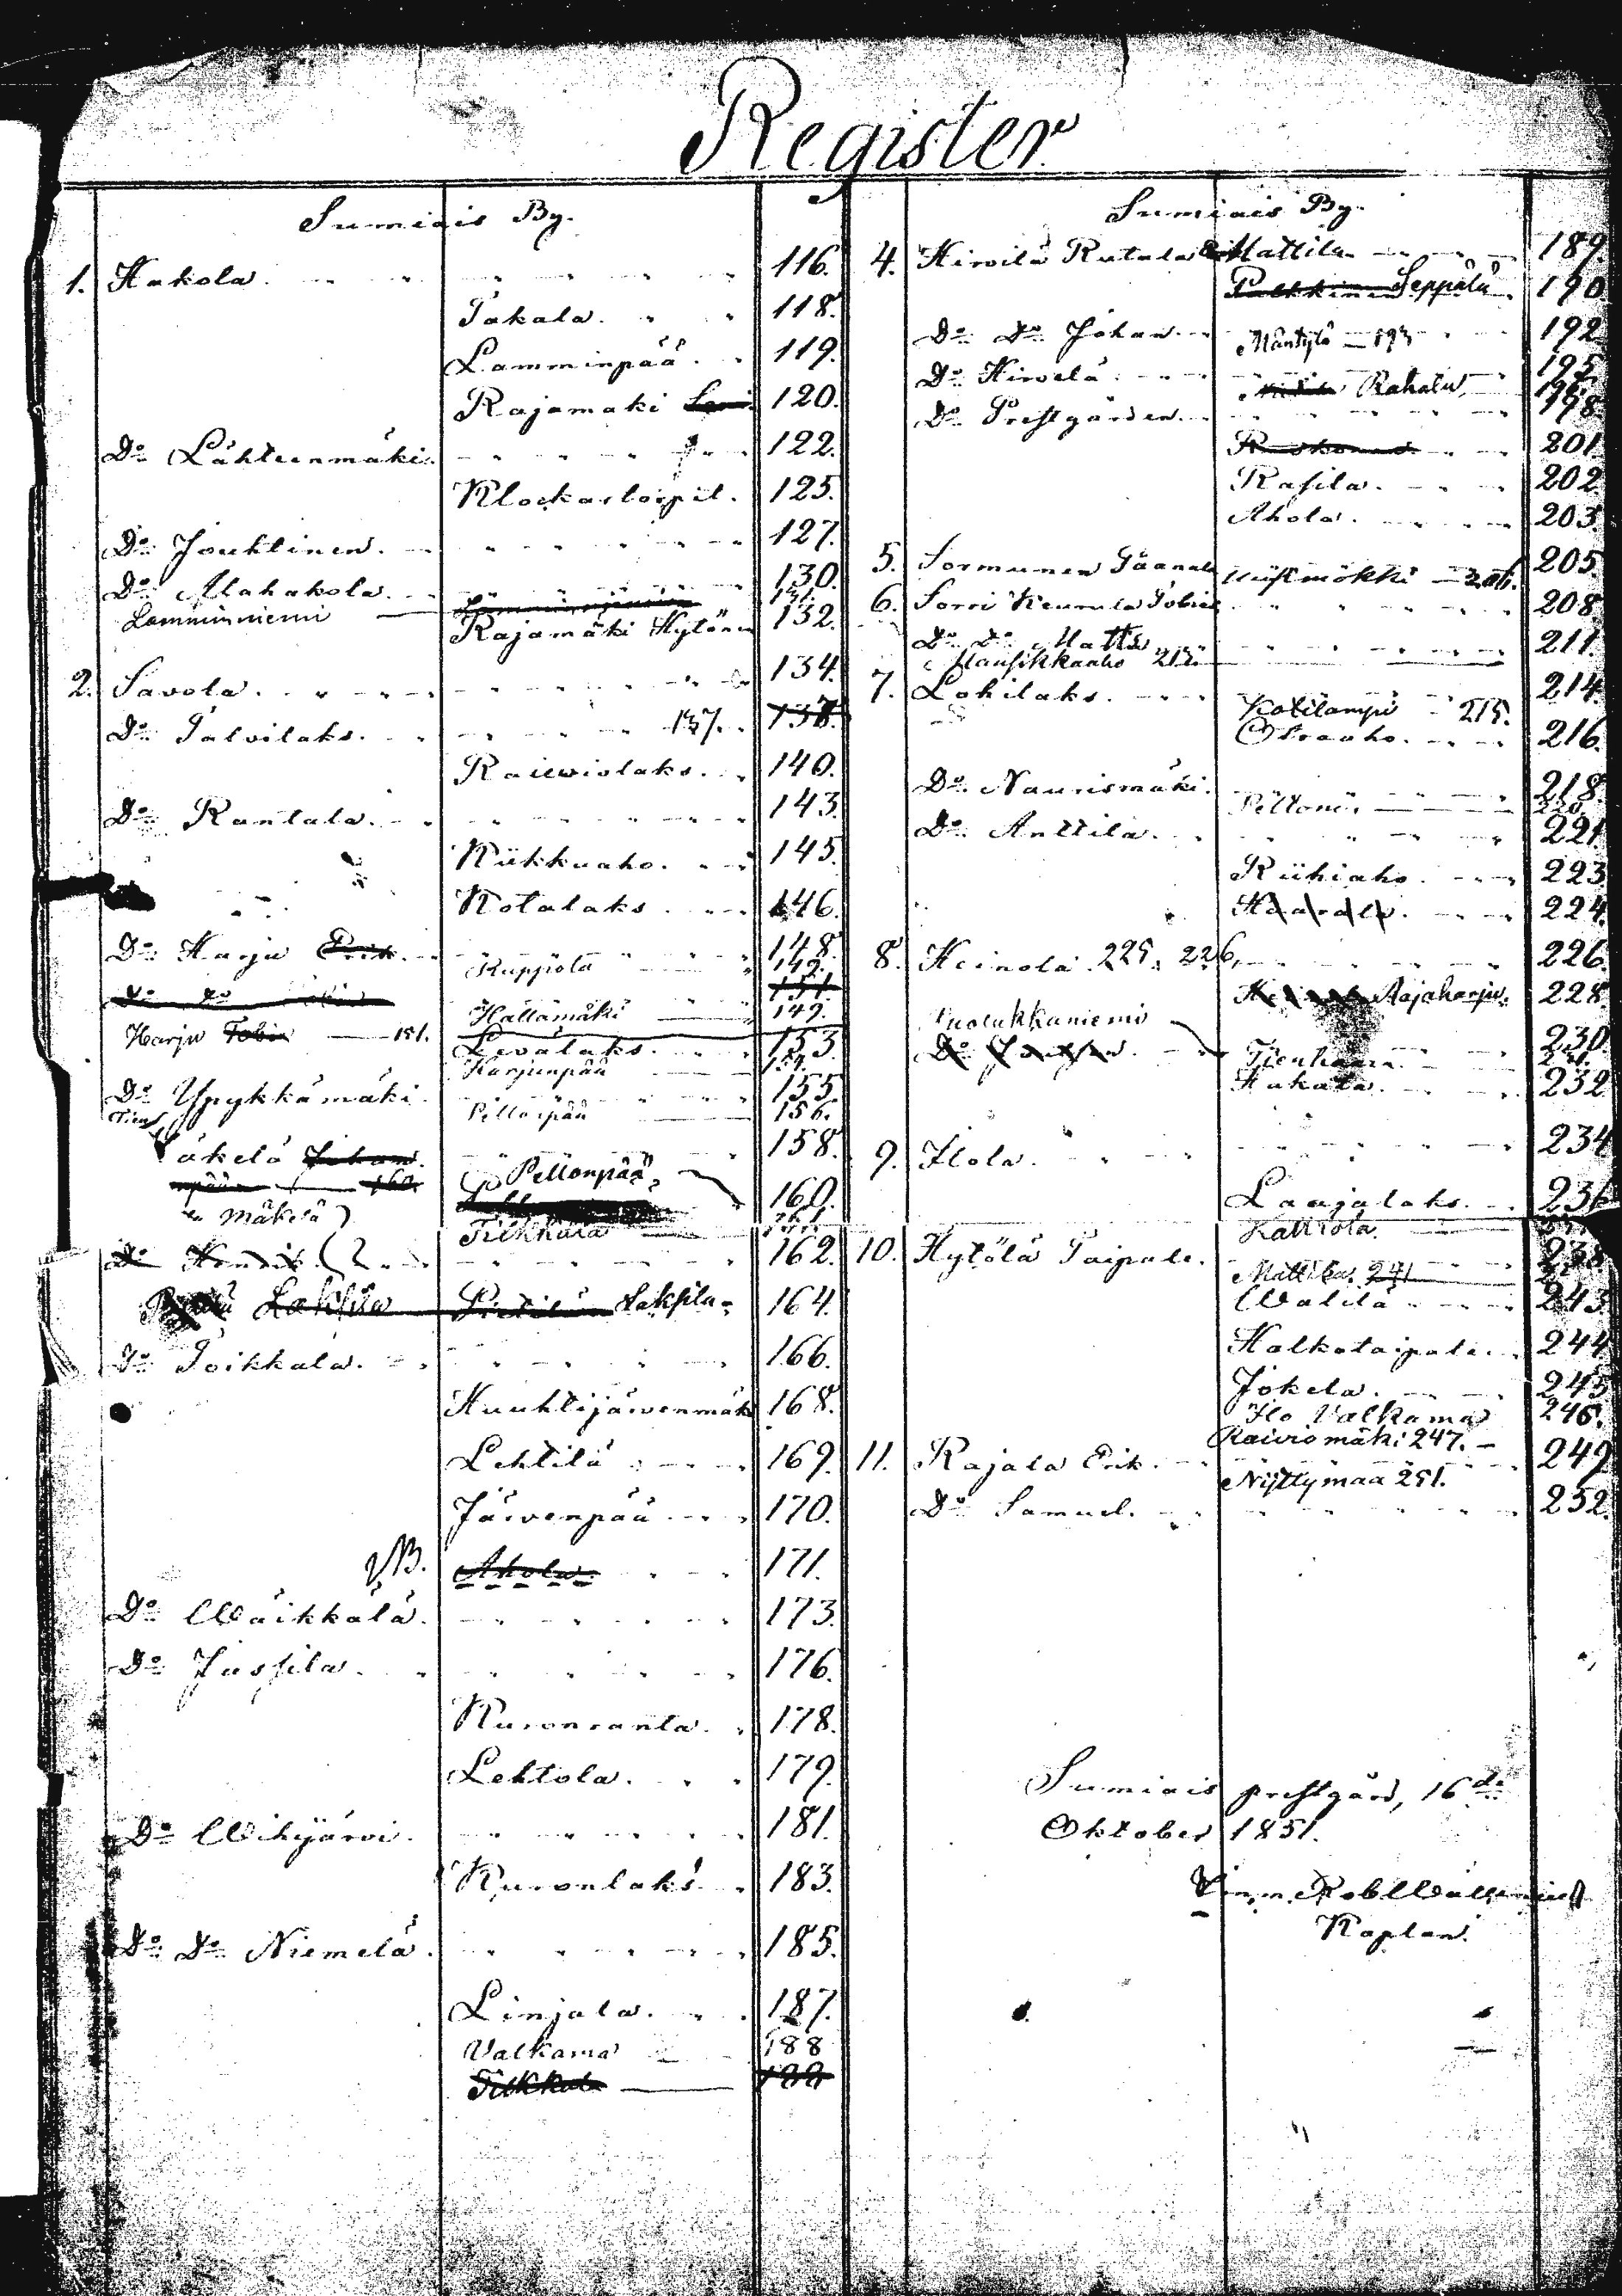 Register
Sumiais By.
1. Hakola. 116.
Takala. 118.
Lamminpää. 119.
Rajamäki 120.
Do Lähteenmäki. 122.
Klockarlorpet. 125.
Do Jouhtinen. 127.
Do Alahakola. 130.
Lamminniemi 131.
Rajamäki Hytönen 132.
2. Savola. 134.
Do Talvilaks. 137. 138.
Raiwiolaks. 140.
Do Rantala. 143.
Kiikkuaho. 145.
Kotalaks 146.
Do Harju Erik. 148.
Kuppola 149.
151.
Hallamäki 149.
Harju Tobias 151.
Levälaks. 153
Harjunpää 154.
Do Ypykkämäki. 155
Peltorpää 156.
äkelä Johan. 158.
Pellonpää 160.
Mäkelä)
Tikkala 161.
Do Henrik 162.
Laksila Laksila 164.
Do Toikkala. 166.
Huuhtijärvenmäk 168.
Lehtilä 169.
Järvenpää 170.
NB. Ahola 171.
Do Wäikkälä. 173.
Do Jussila. 176.
Kuronranta. 178.
Lehtola. 179.
Do Wihijärvi. 181.
Kuronlaks. 183.
Do Do Niemelä. 185.
Linjala. 187.
Valkama 188
Tikkala 188
Sumiais By.
4. Hirvilä Rutala Mattila 189.
Pulkkinen Seppälä 190
Do Do Johan. 192
Mäntylä 193
Do Hirvelä. 195.
Rahala 196.
Do Prestgården. 198.
201
Rasila. 202
Ahola. 203.
5. Sormunen Päänala 205.
Uusimökki 206.
6. Sorri Keurula Tobias 208
Do Do Matts 211.
Mansikkaaho 212.
7. Lohilaks. 214
Kotilampi 215.
Otraaho. 216.
Do Naurismäki. 218.
Peltoni 220.
Do Anttila. 221.
Riihiaho. 223
Haarala. 224.
8. Heinola. 225. 226. 226.
Aajaharju. 228
Puolukkaniemi 230
Tienhaara. 231.
Hakala. 232
9. Ilola. 234
Laajalaks. 236
Kalliola.
10. Hytölä Taipale. 238
Mattila. 241
Walilä 243
Halkotaipale. 244
Jokela. 245
Ilo Valkama 246.
Raivio mäki 247.
11. Rajala Erik. 249
Niittymaa 251.
Do Samuel. 252.
Sumiais prestgård, 16de
Oktober 1851.
Kaplan.